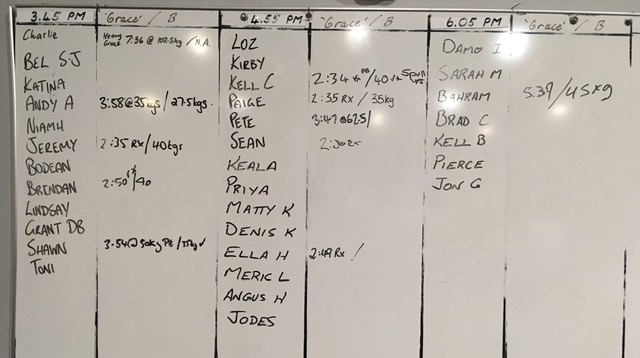 3.45 PM 'Grace' / B
Charlie Heavy Grace 7:36 @ 102.5kg / N.A.
BEL S-J
KATINA
ANDY A 3:58@35kgs / 27.5kgs.
NIAMH
JEREMY 2:35 RX / 40kgs
BODEAN
BRENDAN 2:50 /90
LINDSAY
GRANT DB
SHAWN 3.54@50kg PB / 75kg
TONI
4.55 PM 'Grace' / B
LOZ
KIRBY
KELL C 2:34 /40
PAIGE 2:35 RX / 35kg
PETE 3:47 @62.5/
SEAN 2:30 RX
KEALA
PRIYA
MATTY K
DENIS K
ELLA H 2:49 RX /
MERIC L
ANGUS H
JODES
6.05 PM 'Grace' / B
DAMO I
SARAH M
BAHRAM 5.39/45kg
BRAD C
KELL B
PIERCE
JON G